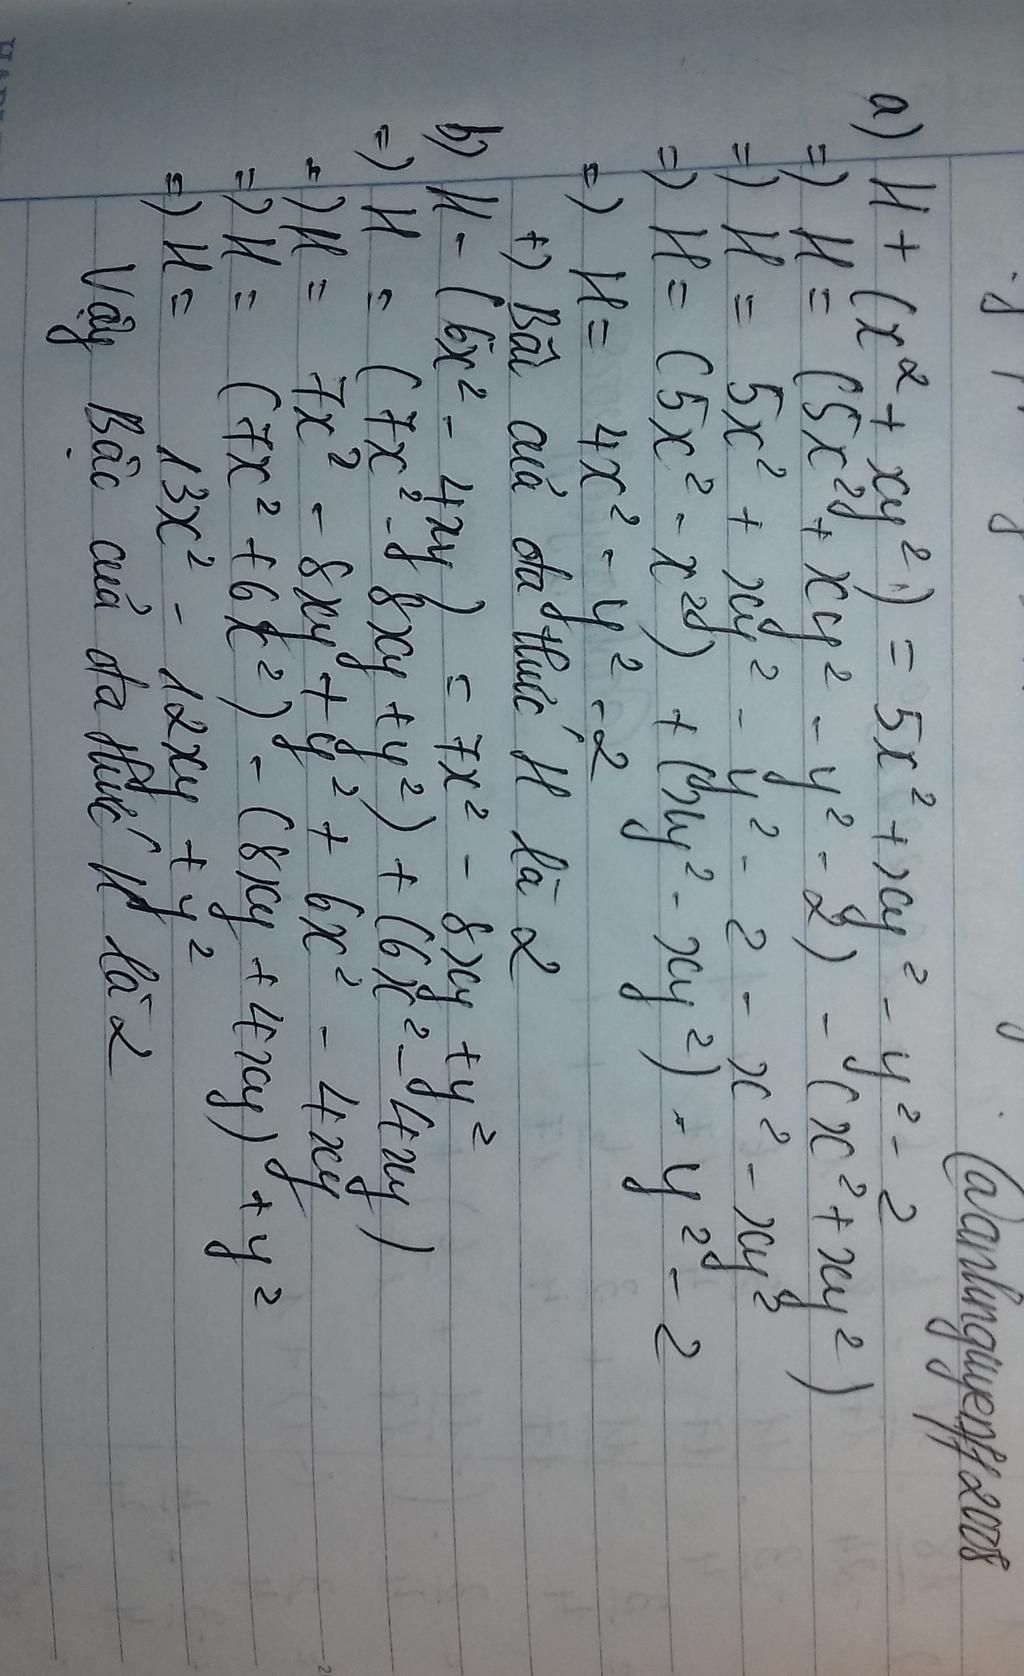 @vanlinguyen1/2008
a) H + (x² + xy²) = 5x² + xy² - y² - 2
=) H = (5x² + xy² - y² - 2) - (x² + xy²)
=) H = 5x² + xy² - y² - 2 - x² - xy²
=) H = (5x² - x²) + (xy² - xy²) - y² - 2
=) H = 4x² - y² - 2
+) Bậc của đa thức H là 2
b) H - (6x² - 4xy) = 7x² - 8xy + y²
=) H = (7x² - 8xy + y²) + (6x² - 4xy)
=) H = 7x² - 8xy + y² + 6x² - 4xy
=) H = (7x² + 6x²) - (8xy + 4xy) + y²
=) H = 13x² - 12xy + y²
Vậy Bậc của đa thức H là 2